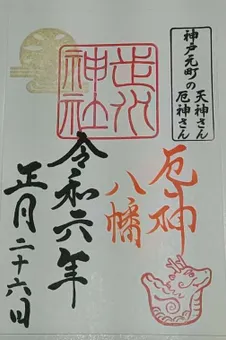 神戸元町の天神さん
厄神さん
走水
神社
厄神
八幡
令和六年
正月二十六日